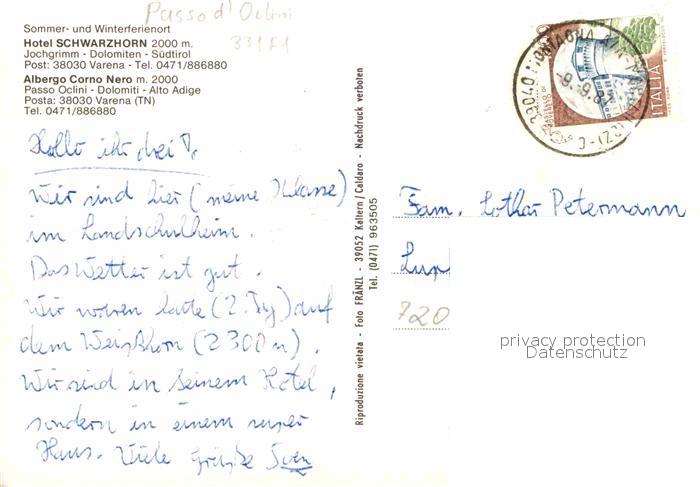 Passo d'Oclini
331F1
Sommer- und Winterferienort
Hotel SCHWARZHORN 2000 m.
Jochgrimm - Dolomiten - Südtirol
Post: 38030 Varena - Tel. 0471/886880
Albergo Corno Nero m. 2000
Passo Oclini - Dolomiti - Alto Adige
Posta: 38030 Varena (TN)
Tel. 0471/886880
Hallo ihr drei!
Wir sind hier (meine Klasse)
im Landschulheim.
Das Wetter ist gut.
Wir waren heute (2. Tag) auf
dem Weißhorn (2300 m).
Wir sind in keinem Hotel,
sondern in einem super
Haus. Viele Grüße Sven
Riproduzione vietata - Foto FRÄNZL - 39052 Kaltern/Caldaro - Nachdruck verboten
Tel. (0471) 963505
39040 MONTAGNA
-9.9.83
ITALIA
Fam. Lothar Petermann
Lux
720
privacy protection
Datenschutz